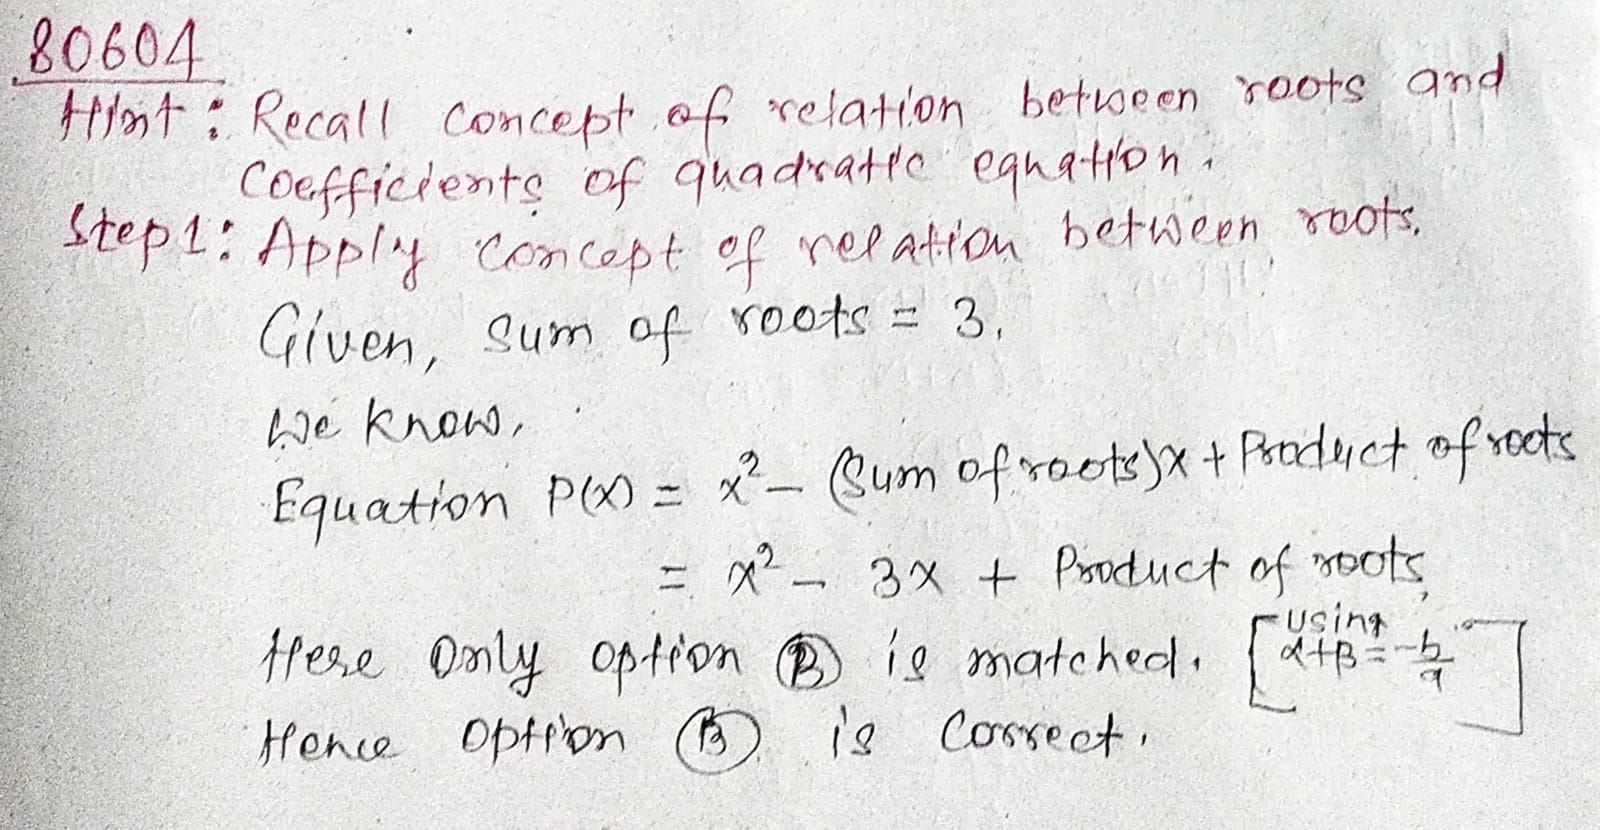 80604
Hint : Recall concept of relation between roots and
Coefficients of quadratic equation.
Step 1 : Apply concept of relation between roots.
Given, Sum of roots = 3.
We know,
Equation P(x) = x² - (Sum of roots)x + Product of roots
= x² - 3x + Product of roots
Here Only option B is matched. [using α+β = -b/a]
Hence Option B is Correct.